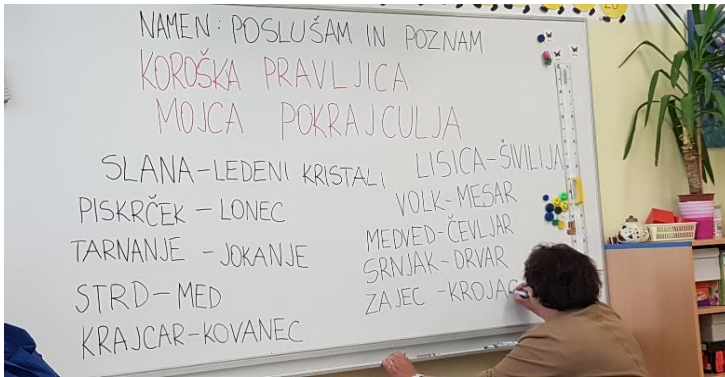 NAMEN: POSLUŠAM IN POZNAM
KOROŠKA PRAVLJICA
MOJCA POKRAJCULJA
SLANA-LEDENI KRISTALI
PISKRČEK - LONEC
TARNANJE - JOKANJE
STRD-MED
KRAJCAR-KOVANEC
LISICA-ŠIVILIJA
VOLK-MESAR
MEDVED-ČEVLJAR
SRNJAK-DRVAR
ZAJEC -KROJAČ